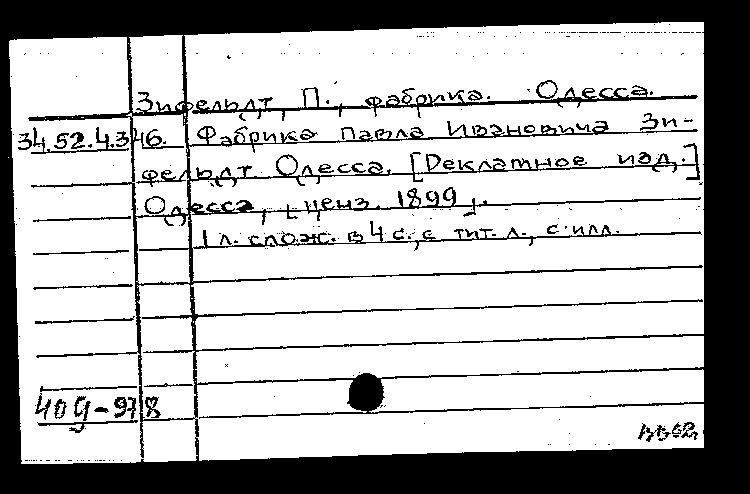 Зифельдт, П., фабрика. Одесса.
34.52.4.346. Фабрика Павла Ивановича Зи-
фельдт. Одесса. [Рекламное изд.]
Одесса, [ценз. 1899].
1 л. слож. в 4 с., с тит. л., с илл.
409-978